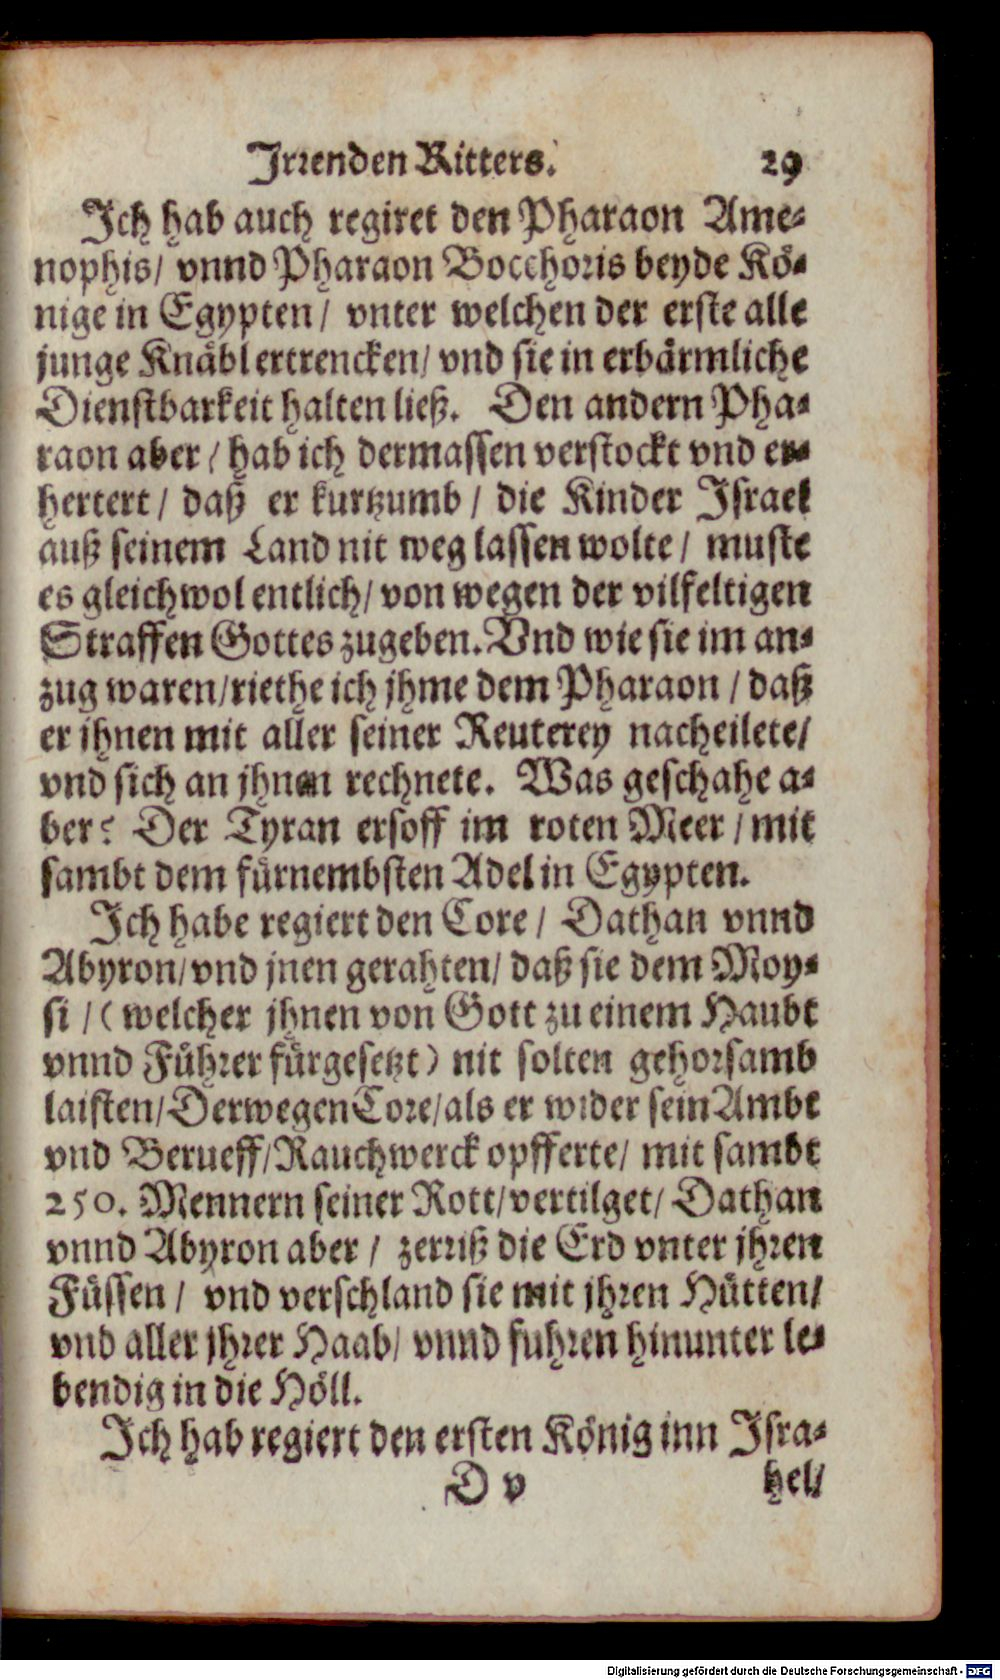 Irrenden Ritters. 29
Ich hab auch regiret den Pharaon Ame-
nophis/ vnnd Pharaon Bocchoris beyde Kö-
nige in Egypten/ vnter welchen der erste alle
junge Knäbl ertrencken/ vnd sie in erbärmliche
Dienstbarkeit halten ließ. Den andern Pha-
raon aber/ hab ich dermassen verstockt vnd er-
hertert/ daß er kurtzumb/ die Kinder Israel
auß seinem Land nit weg lassen wolte/ muste
es gleichwol entlich/ von wegen der vilfeltigen
Straffen Gottes zugeben. Vnd wie sie im an-
zug waren/ riethe ich jhme dem Pharaon/ daß
er jhnen mit aller seiner Reuterey nacheilete/
vnd sich an jhnen rechnete. Was geschahe a-
ber? Der Tyran ersoff im roten Meer/ mit
sambt dem fürnembsten Adel in Egypten.
Ich habe regiert den Core/ Dathan vnnd
Abyron/ vnd jnen gerahten/ daß sie dem Moy-
si/ (welcher jhnen von Gott zu einem Haubt
vnnd Führer fürgesetzt) nit solten gehorsamb
laisten/ Derwegen Core/ als er wider sein Ambt
vnd Berueff/ Rauchwerck opfferte/ mit sambt
250. Mennern seiner Rott/ vertilget/ Dathan
vnnd Abyron aber/ zerriß die Erd vnter jhren
Füssen/ vnd verschland sie mit jhren Hütten/
vnd aller jhrer Haab/ vnnd fuhren hinunter le-
bendig in die Höll.
Ich hab regiert den ersten König inn Isra-
D v hel/
Digitalisierung gefördert durch die Deutsche Forschungsgemeinschaft - DFG